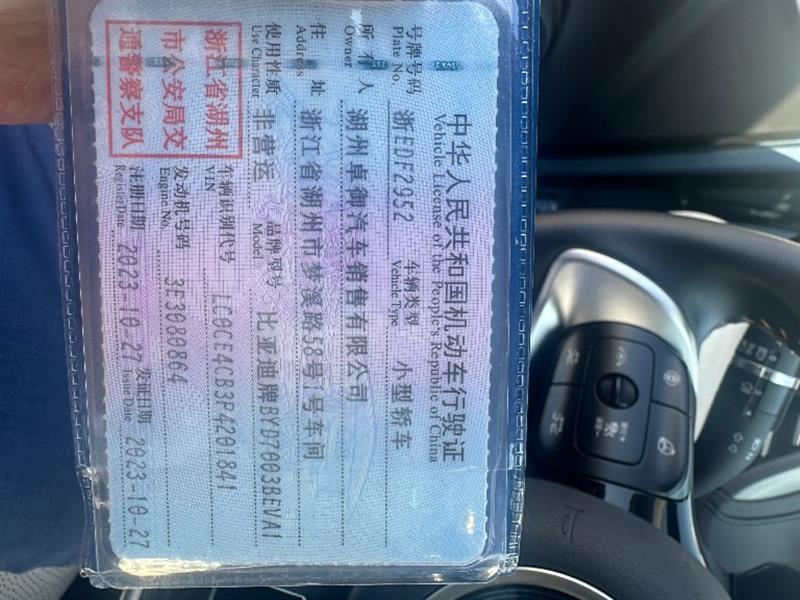 中华人民共和国机动车行驶证
Vehicle License of the People's Republic of China
号牌号码 浙EDF2952 车辆类型 小型轿车
Plate No. Vehicle Type
所有人 湖州卓御汽车销售有限公司
Owner
住址 浙江省湖州市梦溪路58号1号车间
Address
使用性质 非营运 品牌型号 比亚迪牌BYD7003BEVA1
Use Character Model
浙江省湖州
市公安局交
通警察支队
车辆识别代号 LC0CE4CB3P4201841
VIN
发动机号码 3E3080864
Engine No.
注册日期 2023-10-27 发证日期 2023-10-27
Register Date Issue Date